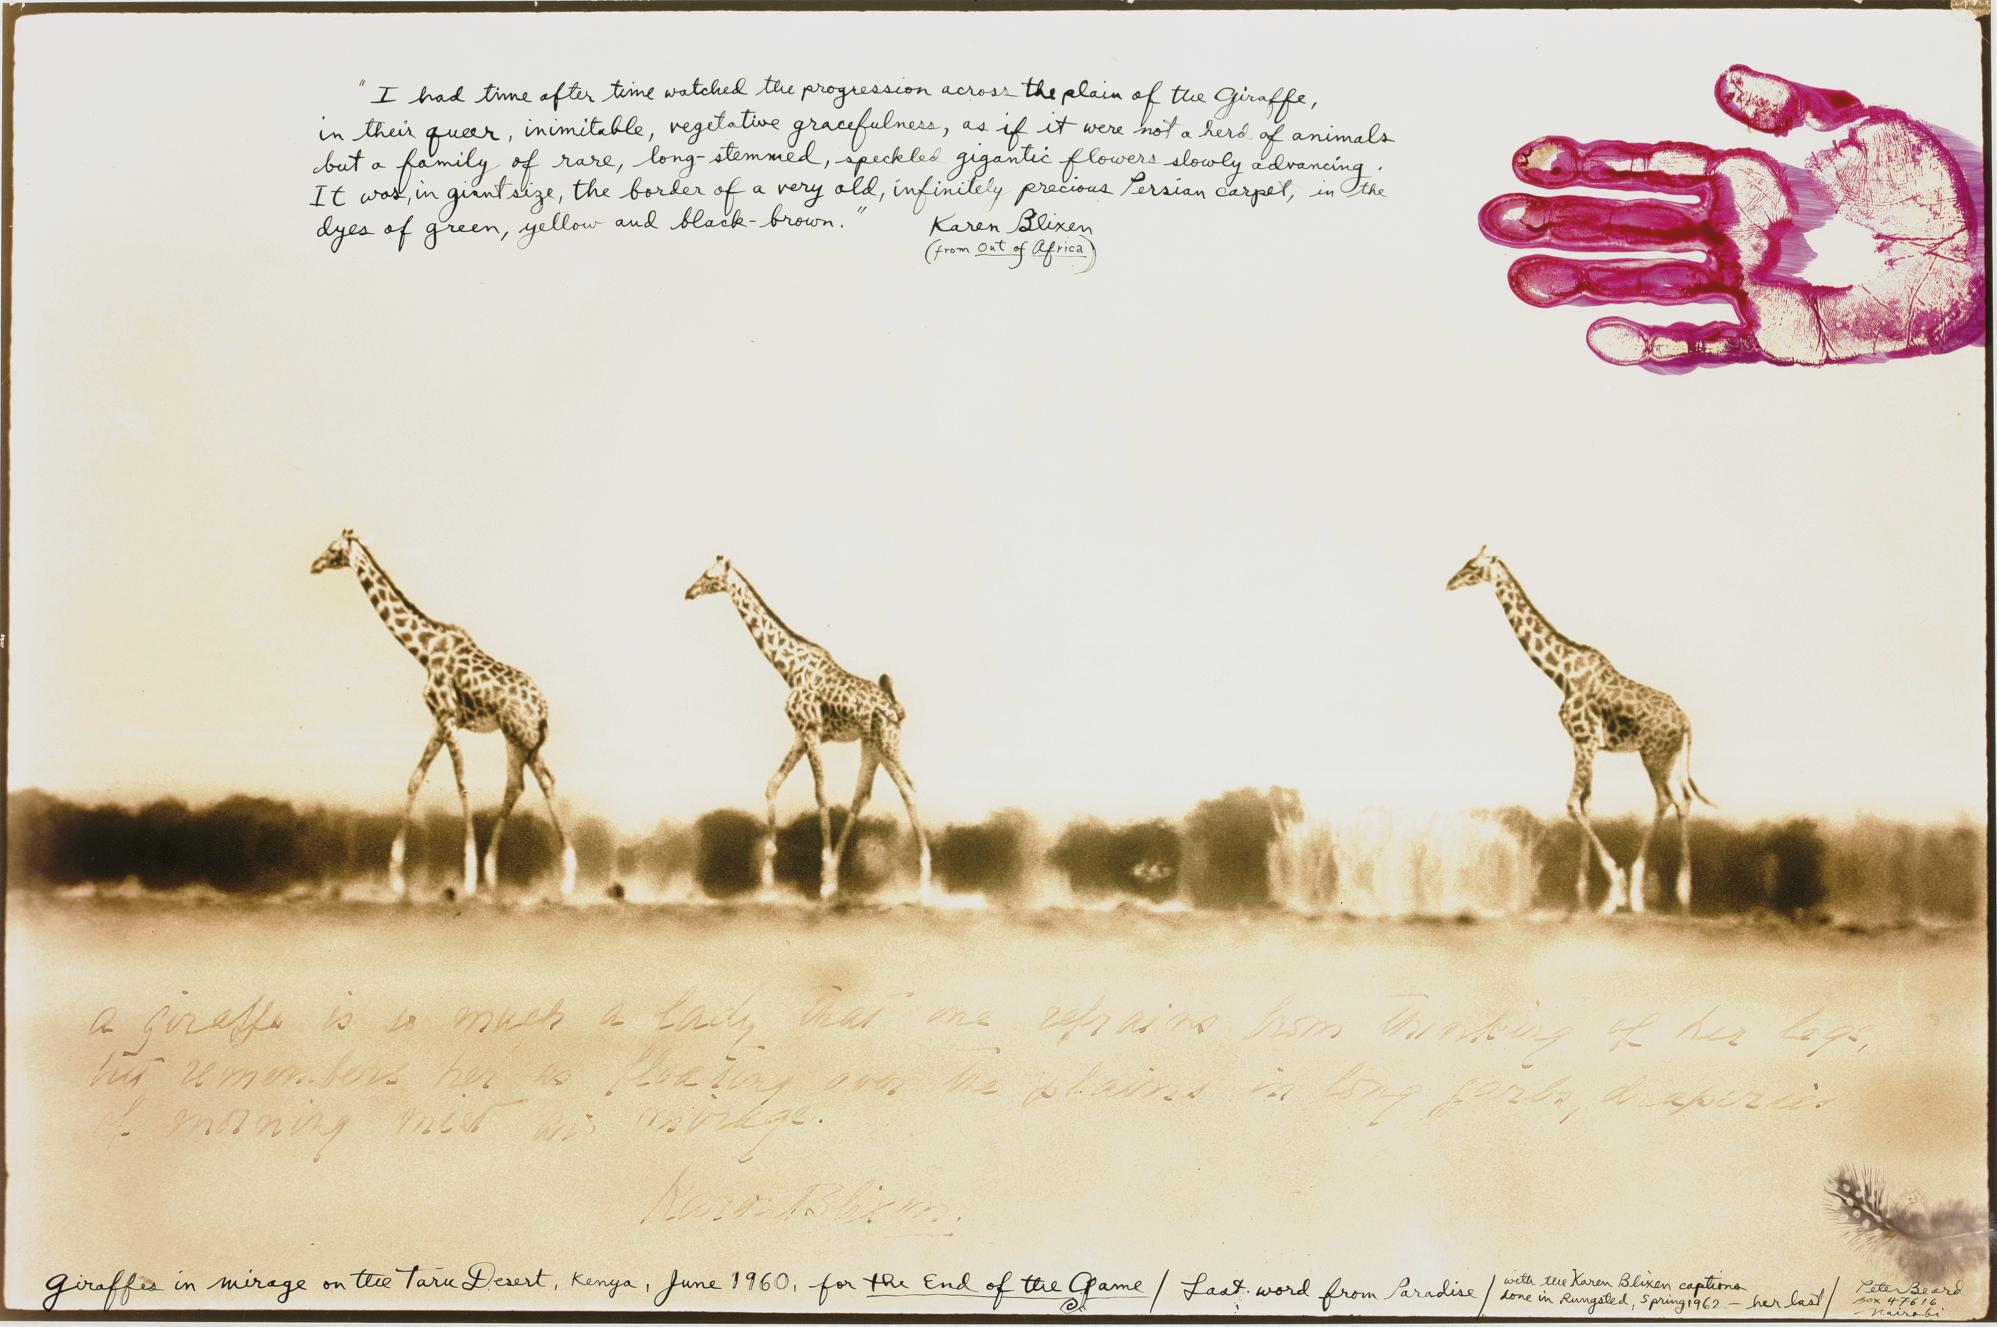 "I had time after time watched the progression across the plain of the Giraffe,
in their queer, inimitable, vegetative gracefulness, as if it were not a herd of animals
but a family of rare, long-stemmed, speckled gigantic flowers slowly advancing.
It was, in giant size, the border of a very old, infinitely precious Persian carpet, in the
dyes of green, yellow and black-brown."
Karen Blixen
(from Out of Africa)
a giraffe is so much a lady that one refrains from thinking of her legs,
but remembers her as floating over the plains in long garbs, draperies
of morning mist and mirage.
Karen Blixen.
Giraffes in mirage on the Taru Desert, Kenya, June 1960, for the End of the Game / Last word from Paradise /
with the Karen Blixen captions
done in Rungsted, Spring 1962 - her last /
Peter Beard
Box 47616
Nairobi